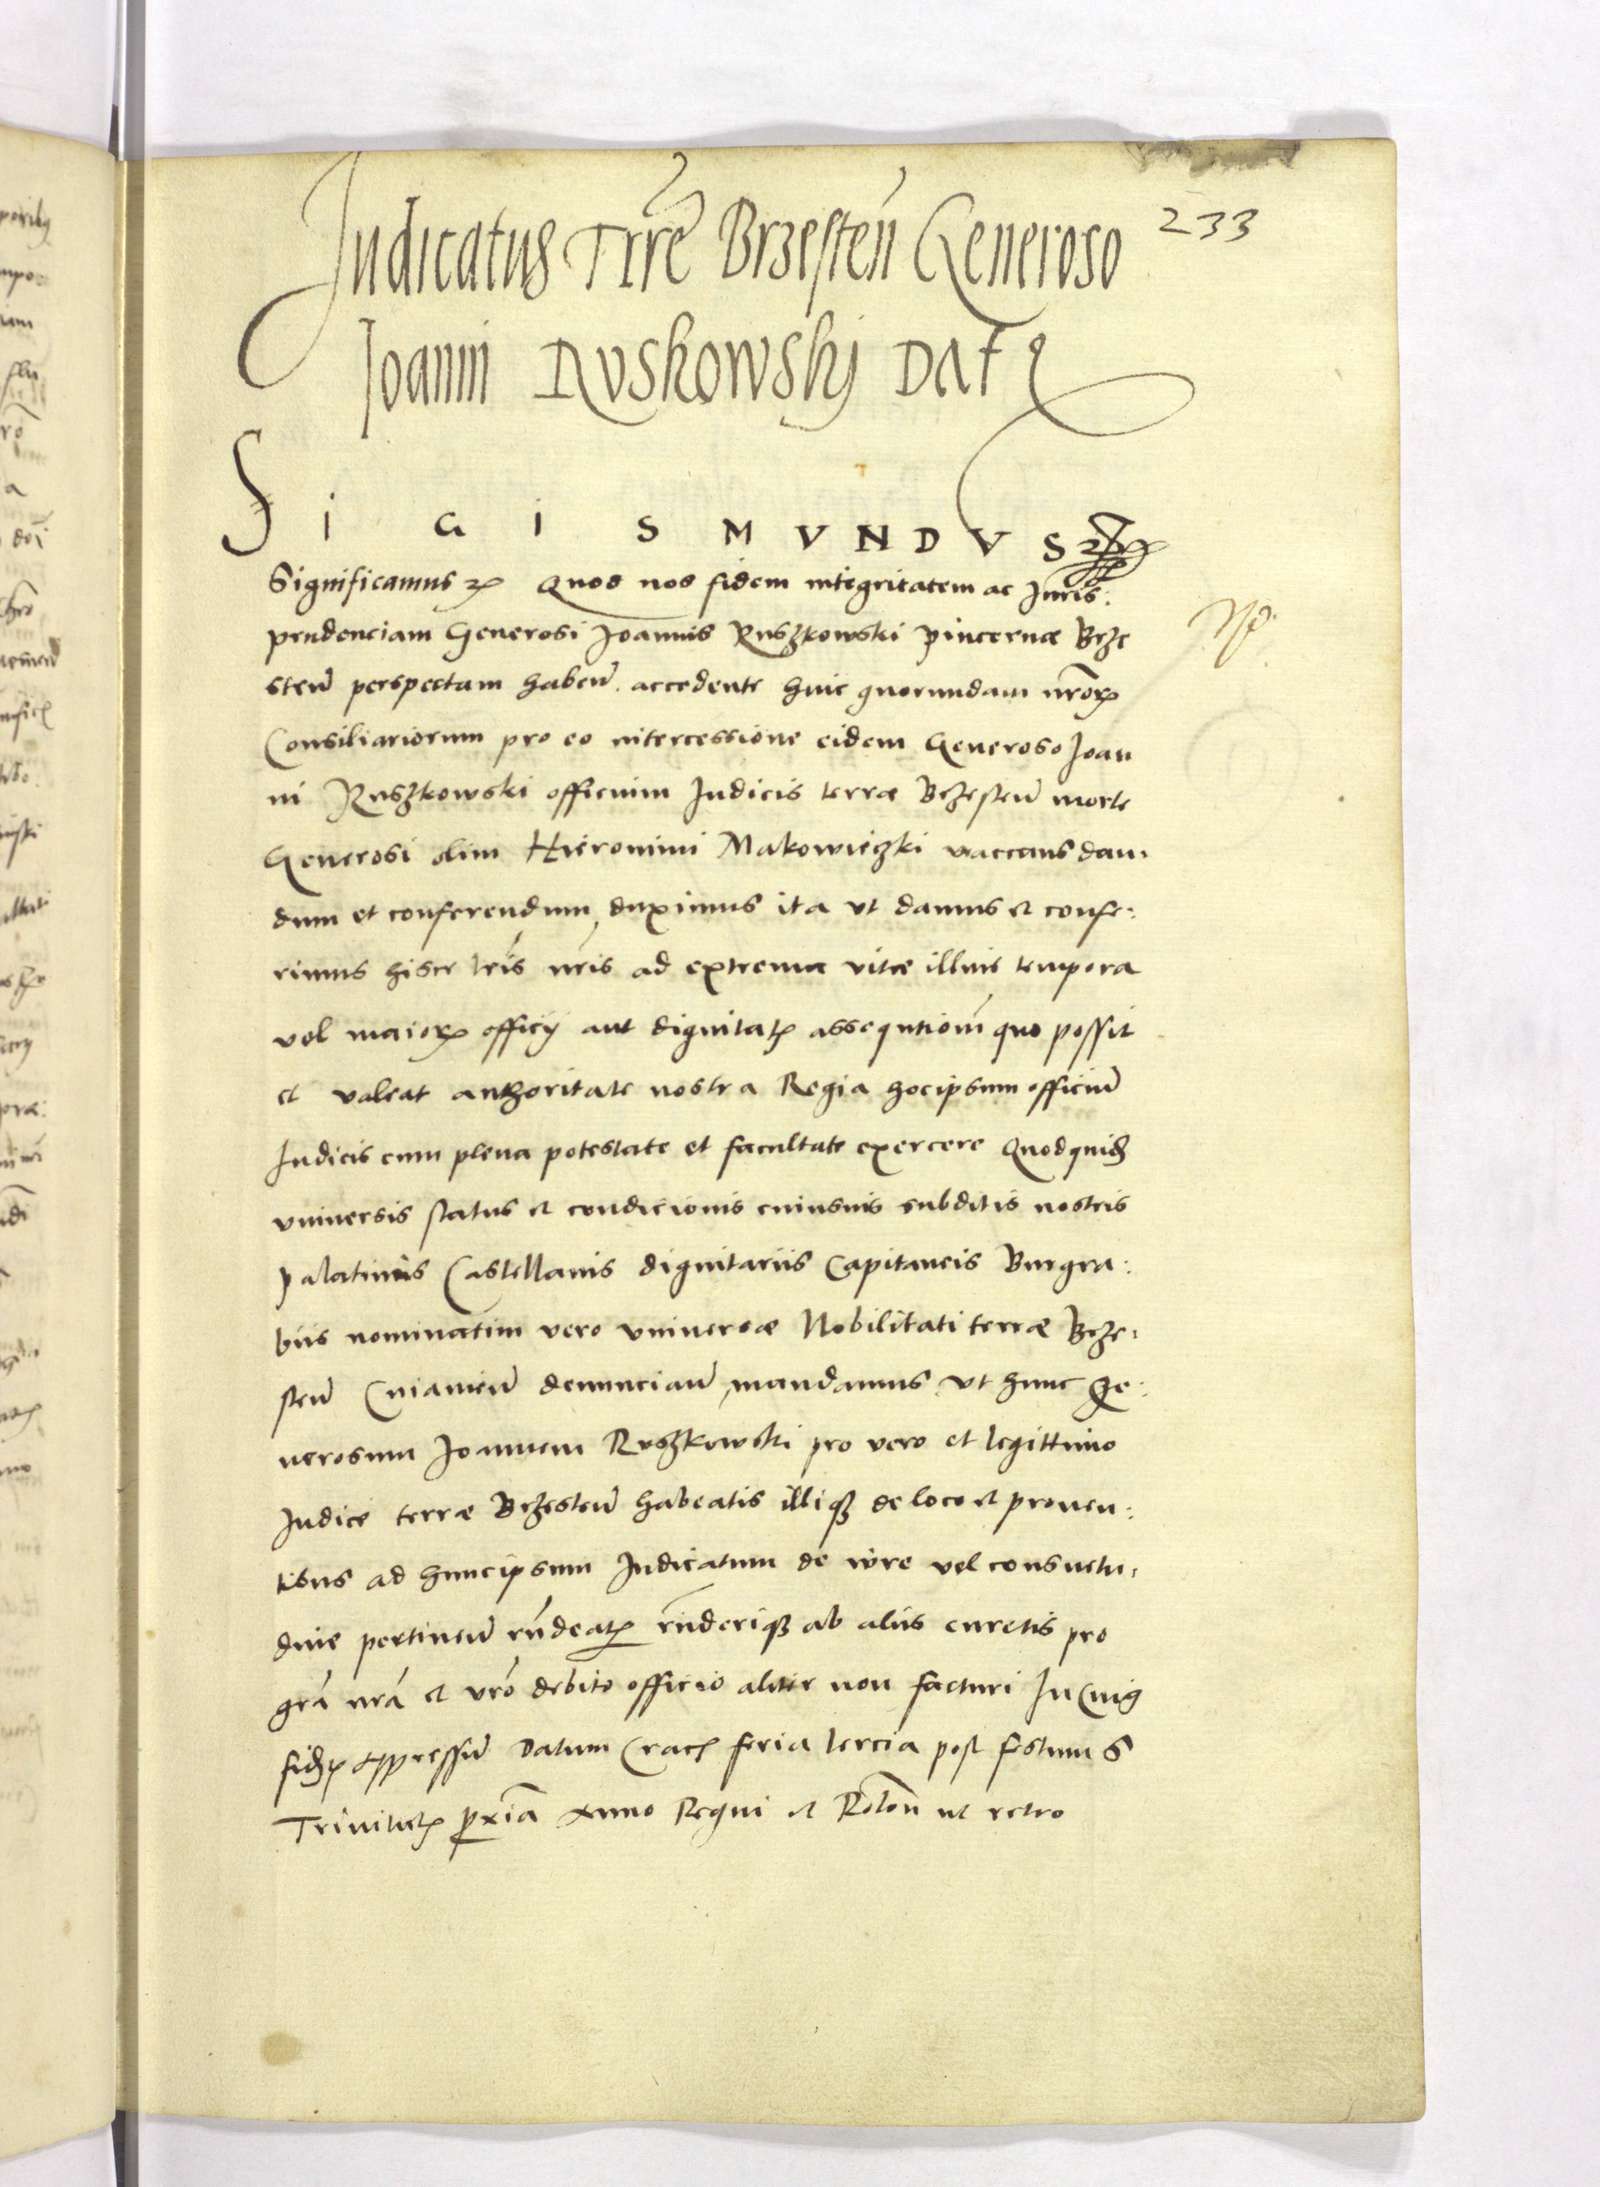 233
Judicatus Trre Brzesten Generoso
Joanni Ruskowskj Dat
SIGISMUNDUS
Significamus Quod nos fidem integritatem ac Juris:
prudenciam Generosi Joannis Ruszkowski pincernæ Brze
sten perspectam haben. accedente huic quorundam nror
Consiliariorum pro eo intercessione eidem Generoso Joan
ni Ruszkowski officium Judicis terræ Brzesten morte
Generosi olim Hieronimi Makowieczki vaccans dan:
dum et conferendum duximus ita vt damus et confe:
rimus hisce lris nris ad extrema vitæ illius tempora
vel maior officij aut dignitat assequtionem quo possit
et valeat authoritate nostra Regia hocipsum officiu
Judicis cum plena potestate et facultate exercere Quodquid
vniuersis status et condicionis cuiusuis subditis nostris
palatinis Castellanis dignitariis Capitaneis Burgra:
biis nominatim vero vniuersæ Nobilitati terræ Brze:
sten Cuiauien denuncian mandamus vt hunc Ge:
nerosum Joannem Ruszkowski pro vero et legittimo
Judice terræ Brzesten habeatis illiq de loco et prouen:
tibus ad huncipsum Judicatum de iure vel consuetu:
dine pertinen rndeat rnderiq ab aliis curetis pro
gra nra et vro debito officio aliter non facturi In Cuig
fid expressu Datum Crac feria tercia post festum S
Trinitat pxia Anno Regni et Roton ut retro